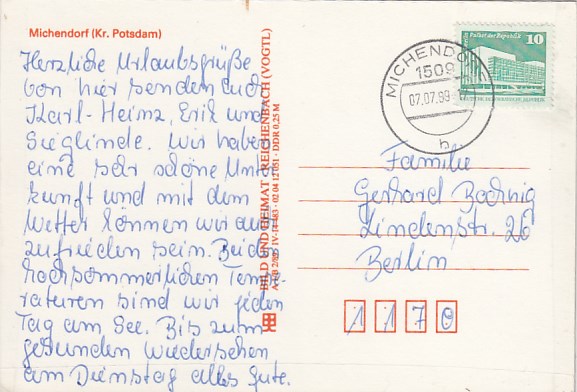 Michendorf (Kr. Potsdam)
Herzliche Urlaubsgrüße
von hier senden Euch
Karl-Heinz, Erik und
Sieglinde. Wir haben
eine sehr schöne Unter
kunft und mit dem
Wetter können wir auch
zufrieden sein. Bei den
hochsommerlichen Tempe-
raturen sind wir jeden
Tag am See. Bis zum
gesunden Wiedersehen
am Dienstag alles Gute.
BILD UND HEIMAT REICHENBACH (VOGTL)
IV-14-483 · 02 04 12 051 · DDR 0,25 M
Palast der Republik
10
MICHENDORF
1509
07.07.
b
Familie
Gerhard
Lindenstr. 26
Berlin
1170